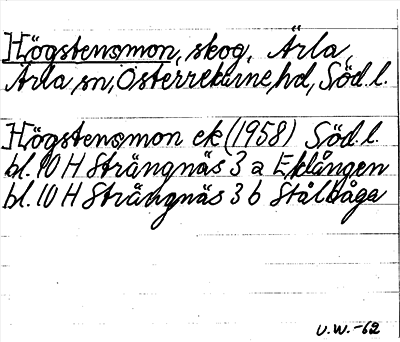 Högstensmon, skog, Ärla,
Ärla sn, Österrekarne, hd, Söd. l.
Högstensmon ek (1958) Söd. l.
bl. 10 H Strängnäs 3 a Eklången
bl. 10 H Strängnäs 3 b Stålbåga
U.W. -62